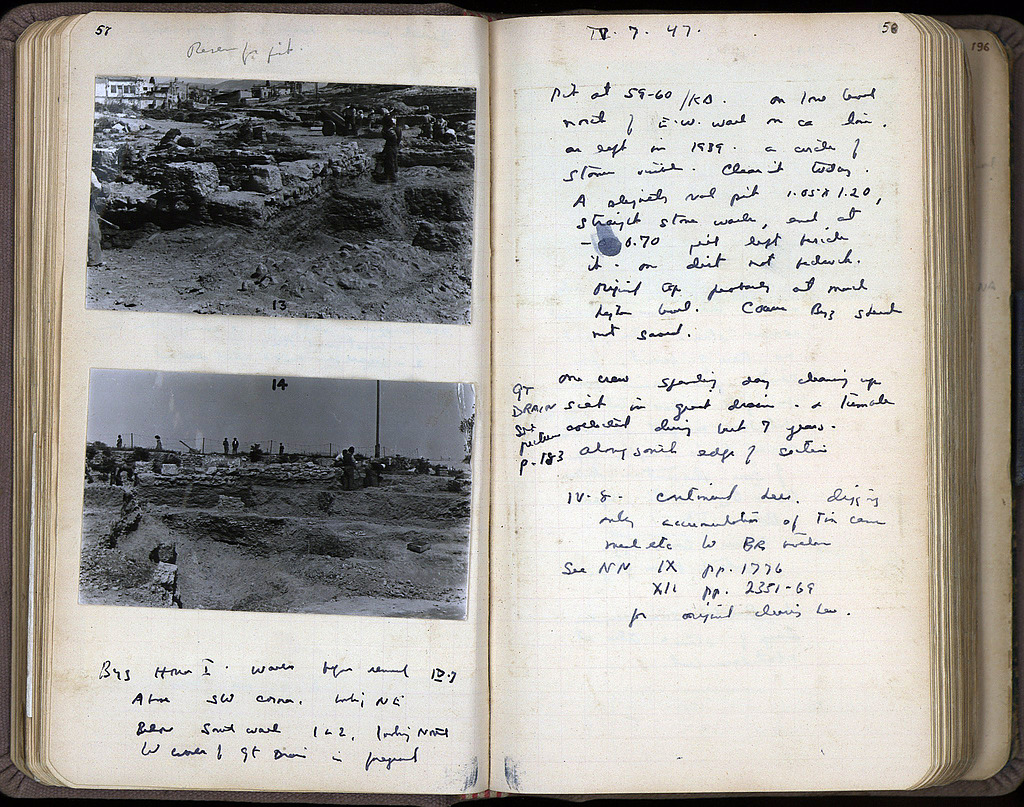 57
Reserve for pit.
13
14
Byz House I. walls before removal IV.7
Above SW corner, looking NE
Below South wall 1 & 2, looking North
W corner of Gt Drain in foreground
IV. 7. 47.
58
Pit at 59-60/KΔ. on low level
north of E.W. wall on
as left in 1939. a circle of
stones visible. Clear it today.
A slightly oval pit 1.05 x 1.20,
straight stone walls, end at
- 0.70 left inside
it. on dirt not bedrock.
Original top probably at much
higher level. Coarse Byz sherds
not saved.
GT DRAIN
See
picture
p. 183
One crew spending day cleaning up
silt in great drain. &
collected during last 7 years.
along south edge of section
IV. 8. continued here. digging
only accumulation of tin cans
etc W
See NN IX pp. 1776
XII pp. 2351-69
for original clearing here.
196